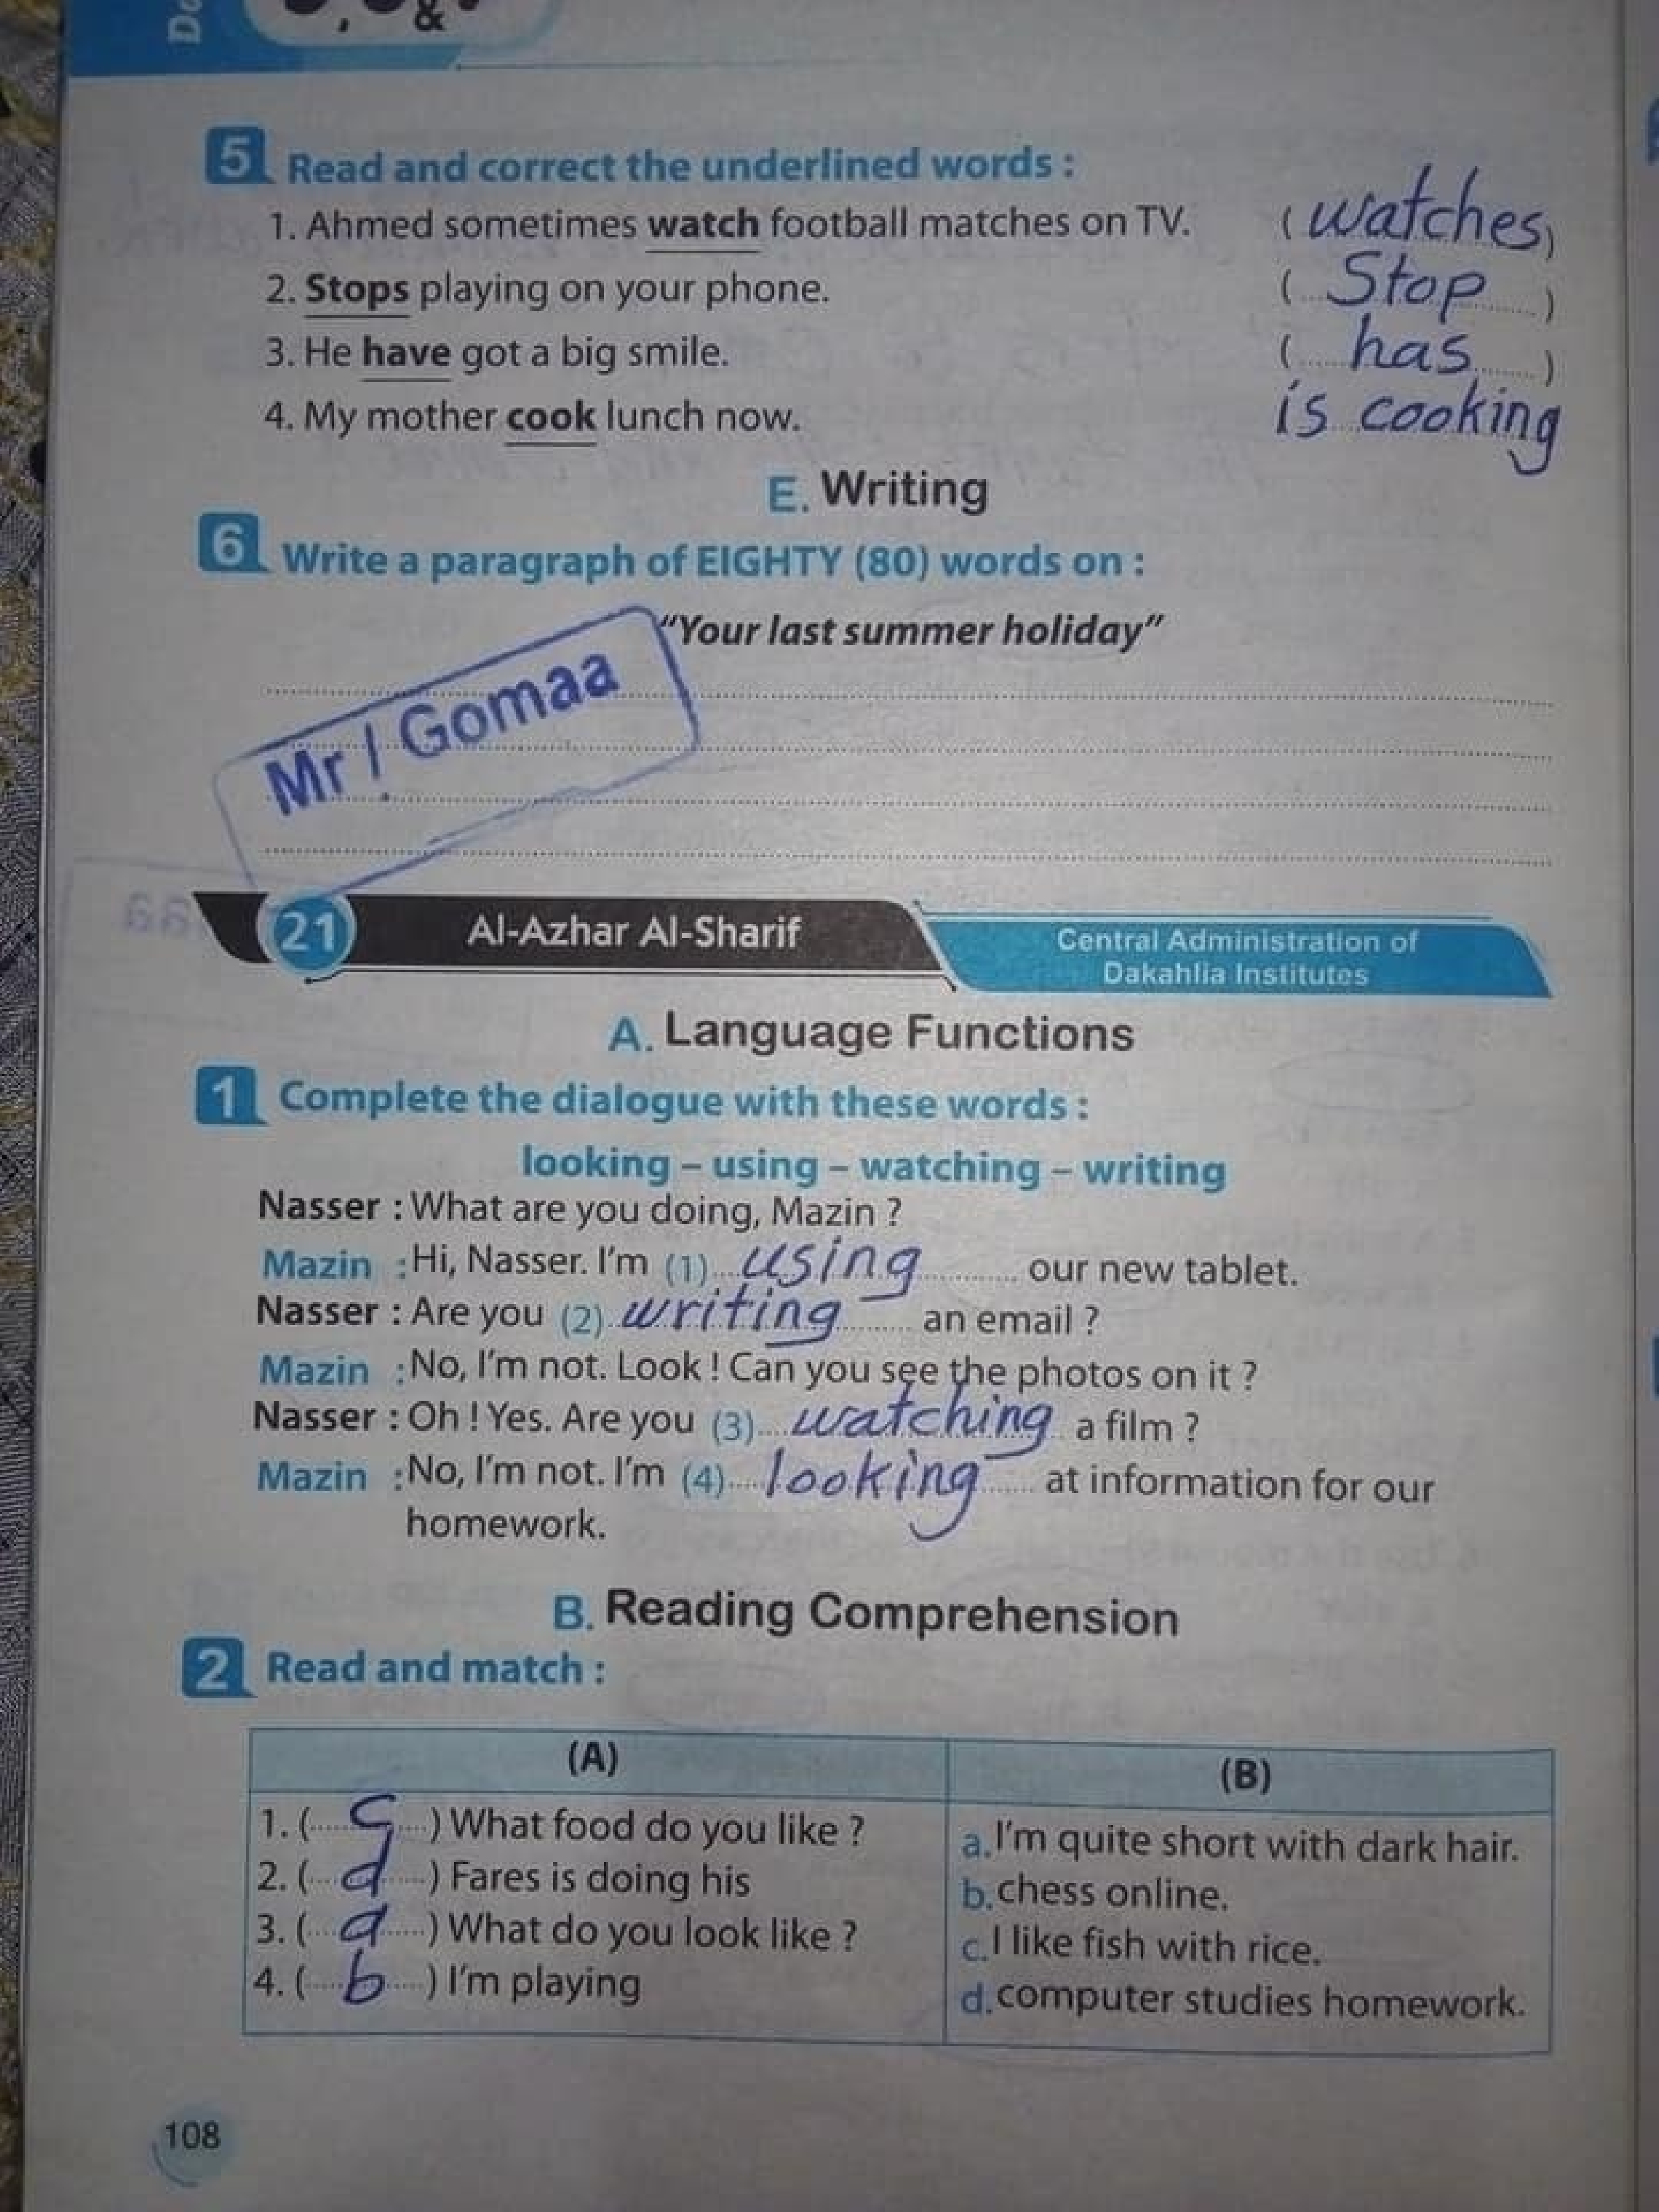 &
5 Read and correct the underlined words :
1. Ahmed sometimes watch football matches on TV. ( watches )
2. Stops playing on your phone. ( Stop )
3. He have got a big smile. ( has )
4. My mother cook lunch now. is cooking
E. Writing
6 Write a paragraph of EIGHTY (80) words on :
"Your last summer holiday"
Mr / Gomaa
21 Al-Azhar Al-Sharif Central Administration of
Dakahlia Institutes
A. Language Functions
1 Complete the dialogue with these words :
looking – using – watching – writing
Nasser : What are you doing, Mazin ?
Mazin : Hi, Nasser. I'm (1) using our new tablet.
Nasser : Are you (2) writing an email ?
Mazin : No, I'm not. Look ! Can you see the photos on it ?
Nasser : Oh ! Yes. Are you (3) watching a film ?
Mazin : No, I'm not. I'm (4) looking at information for our
homework.
B. Reading Comprehension
2 Read and match :
(A) (B)
1. ( c ) What food do you like ? a. I'm quite short with dark hair.
2. ( d ) Fares is doing his b. chess online.
3. ( a ) What do you look like ? c. I like fish with rice.
4. ( b ) I'm playing d. computer studies homework.
108